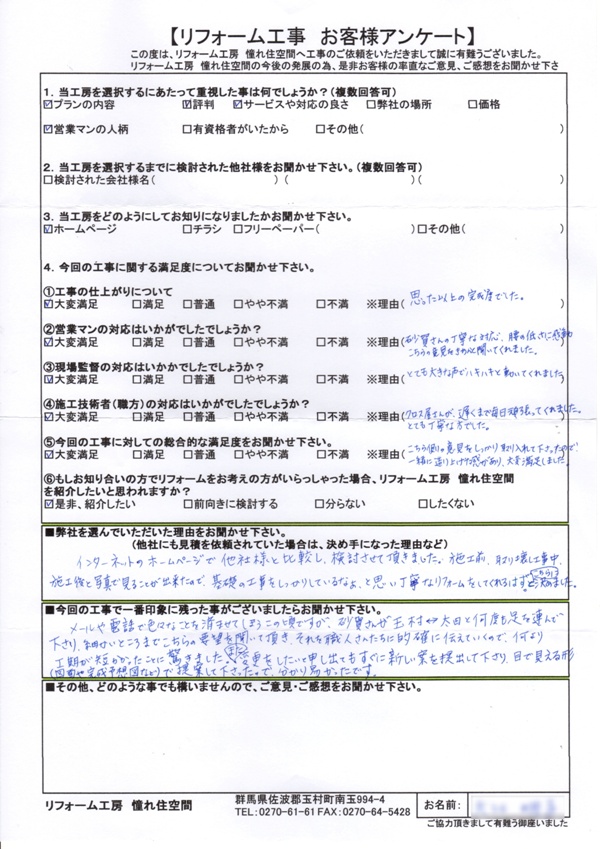 【リフォーム工事　お客様アンケート】
この度は、リフォーム工房　憧れ住空間へ工事のご依頼をいただきまして誠に有難うございました。
リフォーム工房　憧れ住空間の今後の発展の為、是非お客様の率直なご意見、ご感想をお聞かせ下さ
1．当工房を選択するにあたって重視した事は何でしょうか？（複数回答可）
☑プランの内容　☑評判　☑サービスや対応の良さ　□弊社の場所　□価格
☑営業マンの人柄　□有資格者がいたから　□その他（　）
2．当工房を選択するまでに検討された他社様をお聞かせ下さい。（複数回答可）
□検討された会社様名（　）（　）（　）
3．当工房をどのようにしてお知りになりましたかお聞かせ下さい。
☑ホームページ　□チラシ　□フリーペーパー（　）□その他（　）
4．今回の工事に関する満足度についてお聞かせ下さい。
①工事の仕上がりについて
☑大変満足　□満足　□普通　□やや不満　□不満　※理由（思った以上の完成度でした。
②営業マンの対応はいかがでしたでしょうか？
☑大変満足　□満足　□普通　□やや不満　□不満　※理由（砂賀さんの丁寧な対応、腰の低さに感動
こちらの意見をきちんと聞いてくれました。
③現場監督の対応はいかかでしたでしょうか？
☑大変満足　□満足　□普通　□やや不満　□不満　※理由（とても大きな声でハキハキと動いてくれました）
④施工技術者（職方）の対応はいかがでしたでしょうか？
☑大変満足　□満足　□普通　□やや不満　□不満　※理由（クロス屋さんが、遅くまで毎日頑張ってくれました。
とても丁寧な方でした。
⑤今回の工事に対しての総合的な満足度をお聞かせ下さい。
☑大変満足　□満足　□普通　□やや不満　□不満　※理由（こちら側の意見をしっかり取り入れて下さったので、
一緒に造り上げた感があり、大変満足しました。
⑥もしお知り合いの方でリフォームをお考えの方がいらっしゃった場合、リフォーム工房　憧れ住空間
を紹介したいと思われますか？
☑是非、紹介したい　□前向きに検討する　□分らない　□したくない
■弊社を選んでいただいた理由をお聞かせ下さい。
（他社にも見積を依頼されていた場合は、決め手になった理由など）
インターネットのホームページで他社様と比較し、検討させて頂きました。施工前、取り壊し工事中、
施工後と写真で見ることが出来たので、基礎の工事をしっかりしているなぁ、と思い丁寧なリフォームをしてくれるはず、とこちらに決めました。
■今回の工事で一番印象に残った事がございましたらお聞かせ下さい。
メールや電話で色々なことを済ませてしまうこの頃ですが、砂賀さんが玉村↔太田と何度も足を運んで
下さり、細かいところまでこちらの要望を聞いて頂き、それを職人さんたちに的確に伝えていくので、何より
工期が短かかったことに驚きました。変更をしたいと申し出てもすぐに新しい案を提出して下さり、目で見える形
（図面や完成予想図など）で提案して下さったので、分かり易かったです。
■その他、どのような事でも構いませんので、ご意見・ご感想をお聞かせ下さい。
リフォーム工房　憧れ住空間
群馬県佐波郡玉村町南玉994-4
TEL：0270-61-61 FAX：0270-64-5428
お名前：
ご協力頂きまして有難う御座いました